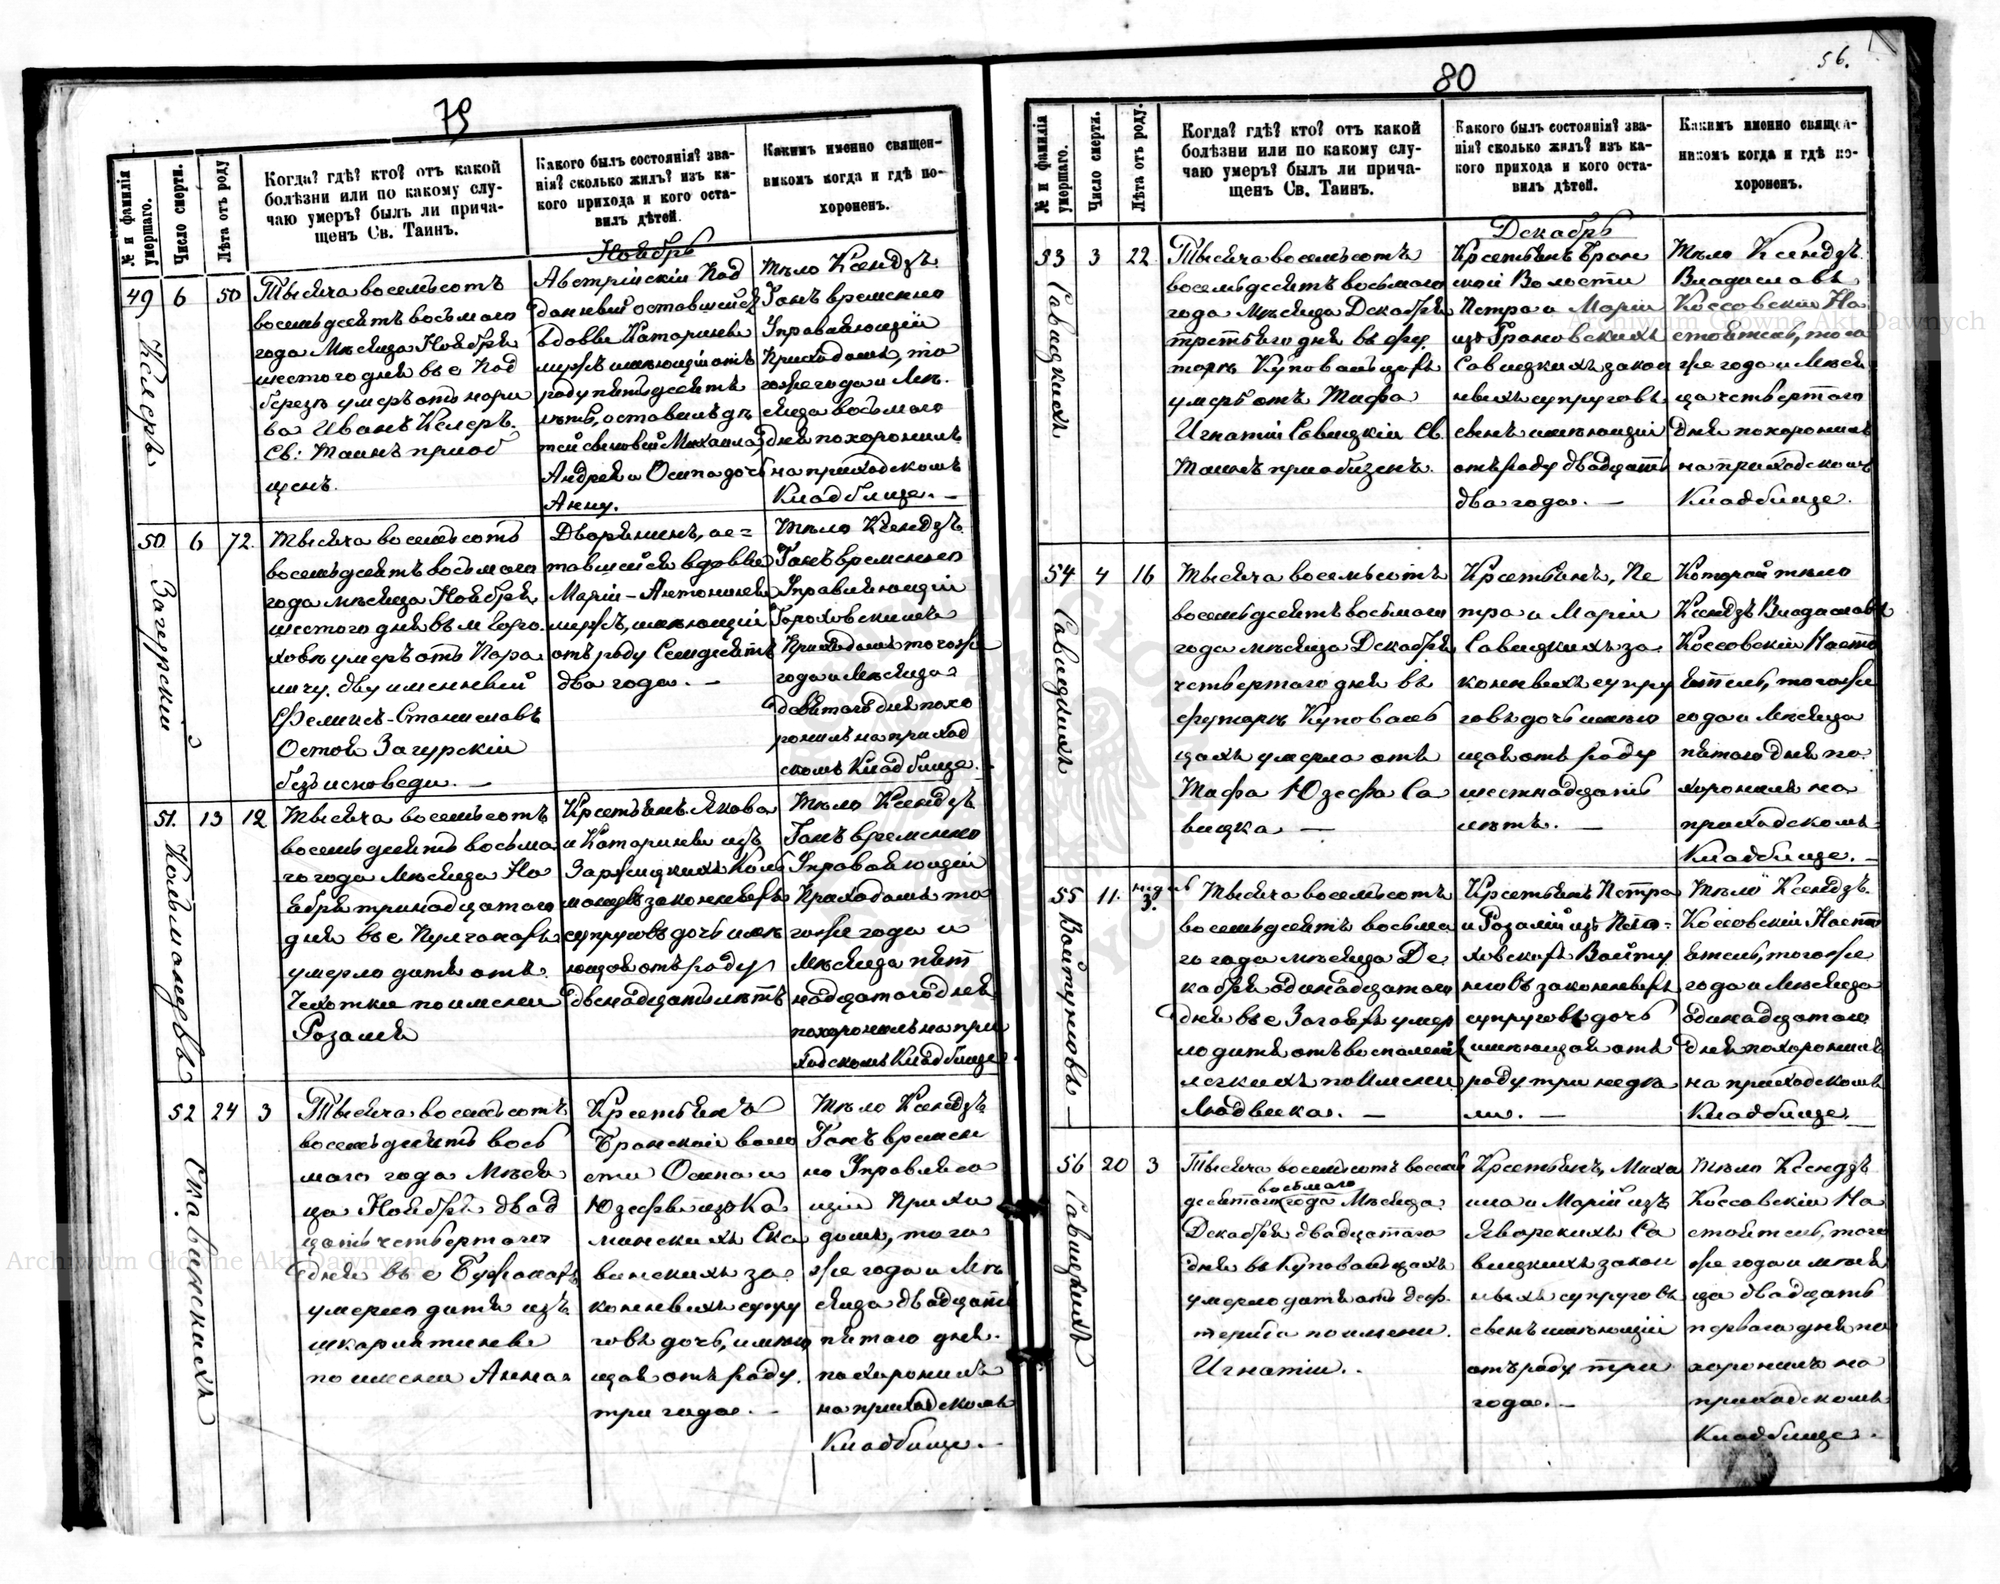 79
№ и фамилія умершаго.
Число смерти.
Лѣта отъ роду
Когда? гдѣ? кто? отъ какой
болѣзни или по какому слу-
чаю умеръ? былъ ли прича-
щенъ Св. Таинъ.
Какого былъ состоянія? зва-
нія? сколько жилъ? изъ ка-
кого прихода и кого оста-
вилъ дѣтей.
Какимъ именно священ-
никомъ когда и гдѣ по-
хороненъ.
Ноябрь
49 6 50
Келеръ
Тысяча восемьсотъ
восемьдесятъ восьмого
года Мѣсяца Ноября
шестого дня въ с Под
березѣ умеръ отъ
Иванъ Келеръ.
Св: Таинъ приоб
щенъ.
Австрійскій Под
данный оставшейся
вдовы Катарины
мужъ имѣющій отъ
роду пятьдесятъ
лѣтъ, оставилъ дѣ
тей сыновей Михаила,
Андрея и Осипа дочь
Анну.
Тѣло Ксендзъ
Ганъ временно
Управляющій
Приходомъ, то
гоже года и Мѣ-
сяца восьмого
дня похоронилъ
на приходскомъ
Кладбище. —
50 6 72.
Загурскій
Тысяча восемьсотъ
восемьдесятъ восьмого
года мѣсяца Ноября
шестого дня въ м Горо-
ховѣ умеръ отъ Пара
личу, двуименный
Феликсъ-Станиславъ
Остоя Загурскій
безъ исповеди. —
Дворянинъ, ос=
тавшейся вдовы
Маріи-Антонины
мужъ, имѣющій
отъ роду Семдесятъ
два года. —
Тѣло Ксендзъ
Ганъ временно
Управляющій
Гороховскимъ
Приходомъ тогоже
года и Мѣсяца
девятого дня похо
ронилъ на приход
скомъ Кладбище.
51. 13 12
Тысяча восемьсотъ
восемьдесятъ восьма
го года Мѣсяца Но
ября тринадцатого
дня въ с Пулгонахъ
умерло дитя отъ
Чахотки по имени
Розалія
Крестьянъ Якова
и Катарины изъ
законныхъ
супруговъ дочь имѣ
ющая отъ роду
двѣнадцать лѣтъ
Тѣло Ксендзъ
Ганъ временно
Управляющій
Приходомъ то
гоже года и
Мѣсяца пят
надцатого дня
похоронилъ на при
ходскомъ Кладбище
52 24 3
Скавинскихъ
Тысяча восемьсотъ
восемьдесятъ вось
мого года Мѣся
ца Ноября двад
цать четвертого
дня въ с
умерло дитя изъ
шкарлятины
по имени Анна
Крестьянъ
Бранской воло
сти Осипа и
Юзефы изъ Ка
минскихъ Ска
винскихъ за-
конныхъ супру
говъ дочь, имѣю
щая отъ роду
три года. —
Тѣло Ксендзъ
Ганъ времен
но Управляю
щій Прихо
домъ, того
же года и Мѣ
сяца двадцать
пятого дня
похоронилъ
на приходскомъ
Кладбище. —
80
56.
№ и фамилія умершаго.
Число смерти.
Лѣта отъ роду.
Когда? гдѣ? кто? отъ какой
болѣзни или по какому слу-
чаю умеръ? былъ ли прича-
щенъ Св. Таинъ.
Какого былъ состоянія? зва-
нія? сколько жилъ? изъ ка-
кого прихода и кого оста-
вилъ дѣтей.
Какимъ именно священ-
никомъ когда и гдѣ по-
хороненъ.
Декабрь
53 3 22
Савицкихъ
Тысяча восемьсотъ
восемьдесятъ восьмого
года Мѣсяца Декабря
третьяго дня въ фу-
торѣ Куповальцахъ
умеръ отъ Тифа
Игнатій Савицкій Св.
Таинъ приобщенъ.
Крестьянъ Бран
ской Волости
Петра и Маріи
изъ Грановскихъ
Савицкихъ закон
ныхъ супруговъ
сынъ имѣющій
отъ роду двадцать
два года. —
Тѣло Ксендзъ
Владиславъ
Коссовскій На
стоятель, того
же года и Мѣся
ца четвертого
дня похоронилъ
на приходскомъ
Кладбище.
54 4 16
Савицкихъ
Тысяча восемьсотъ
восемьдесятъ восьмого
года мѣсяца Декабря
четвертаго дня въ
футорѣ Куповаль
цахъ умерла отъ
Тифа Юзефа Са
вицка —
Крестьянъ, Пе
тра и Маріи
Савицкихъ за
конныхъ супру
говъ дочь имѣю
щая отъ роду
шестнадцать
лѣтъ. —
Которой тѣло
Ксендзъ Владиславъ
Коссовскій Насто
ятель, тогоже
года и Мѣсяца
пятого дня по
хоронилъ на
приходскомъ
Кладбище. —
55 11. недѣль 3.
Войтуновы —
Тысяча восемьсотъ
восемьдесятъ восьма
го года мѣсяца Де
кабря одинадцатого
дня въ с Загаяхъ умер
ло дитя отъ воспаленія
легкихъ по Имени
Людвика. —
Крестьянъ Петра
и Розаліи изъ
Войту
новъ законныхъ
супруговъ дочь
имѣющая отъ
роду три недѣ
ли. —
Тѣло Ксендзъ
Коссовскій Насто
ятель, тогоже
года и Мѣсяца
одинадцатого
дня похоронилъ
на приходскомъ
Кладбище.
56 20 3
Савицкихъ
Тысяча восемьсотъ восем
десятъ восьмого года Мѣсяца
Декабря двадцатого
дня въ Куповальцахъ
умерло дитя отъ диф-
терита по имени
Игнатій.
Крестьянъ, Миха
ила и Маріи изъ
Яворскихъ Са
вицкихъ закон
ныхъ супруговъ
сынъ имѣющій
отъ роду три
года. —
Тѣло Ксендзъ
Коссовскій На
стоятель, того
же года и мѣся
ца двадцать
первого дня по
хоронилъ на
приходскомъ
Кладбище.
Archiwum Główne Akt Dawnych
Archiwum Główne Akt Dawnych